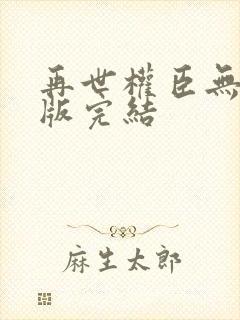 再世權臣無
版完結
麻生太郎